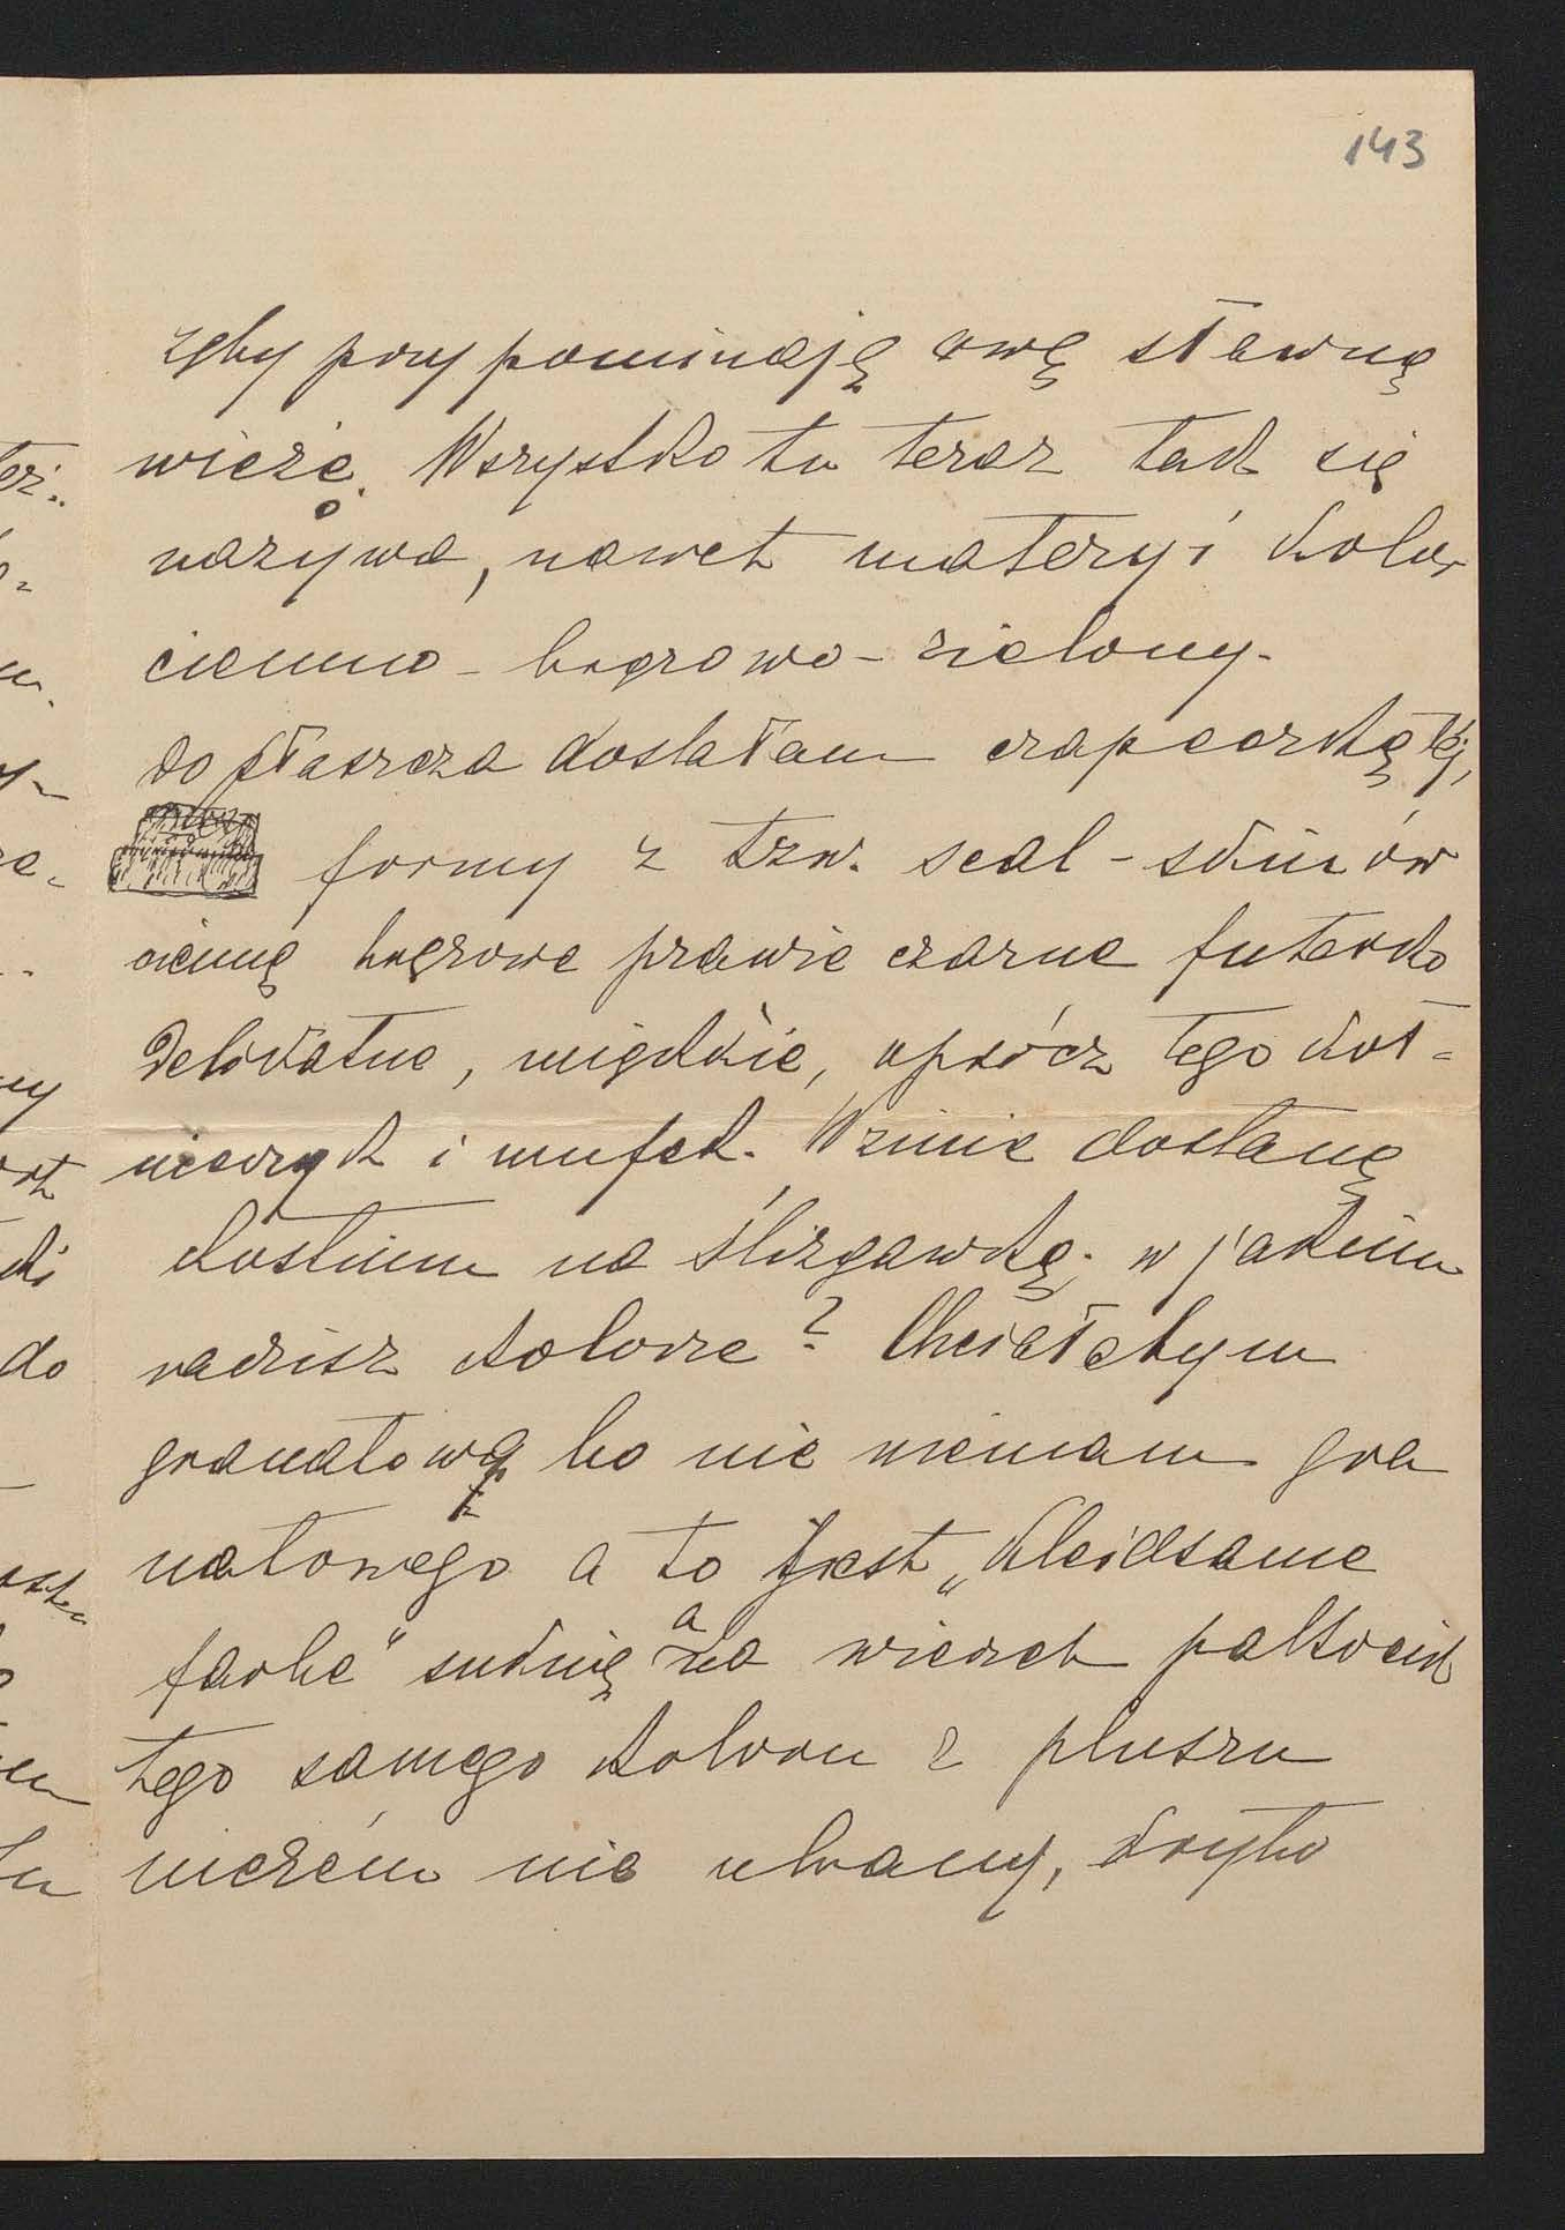 143
zęby przypominają ową sławną
wieżę. Wszystko tu teraz tak się
nazywa, nawet materyi kolor
ciemno-bągrowo-zielony.
do płaszcza dostałam czapeczkę tej,
formy z tzw. seal-skinów
ciemnę bągrowe prawie czarne futerko
Delikatne, miękkie, oprócz tego koł=
nierzyk i mufek. W zimie dostanę
kostium na ślizgawkę; w jakim
radzisz kolorze? Chciałabym
granatową bo nic niemam gra
natowego a to jest „kleidsame
farbe" suknię a na wierzch paltocik
tego samego koloru z pluszu
niczém nie ubrany, tylko